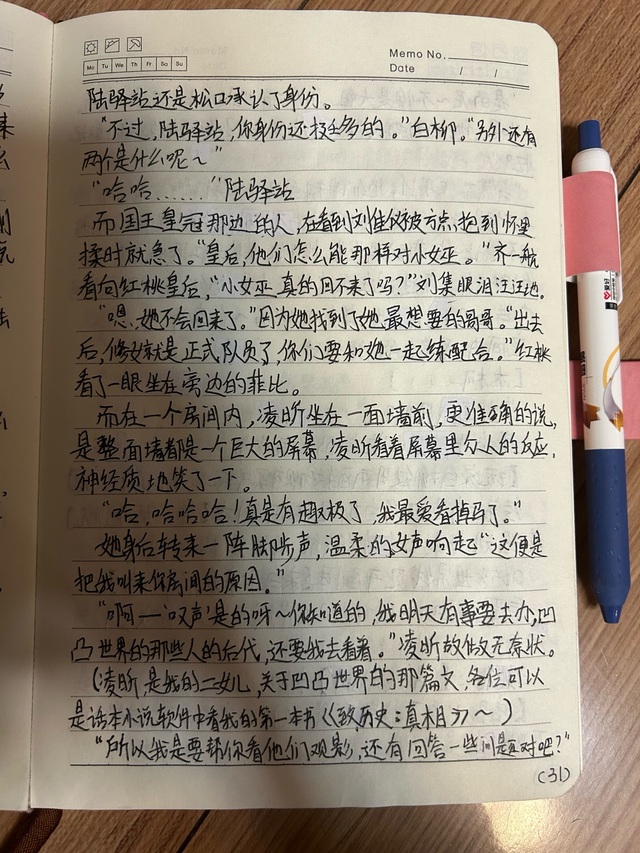 Memo No.
Mo Tu We Th Fr Sa Su
Date / /
陆驿站还是松口承认了身份。
“不过,陆驿站,你身份还挺多的。”白柳。“另外还有
两个是什么呢~”
“哈哈……”陆驿站
而国王皇冠那边的人,在看到刘佳仪被方点抱到怀里
揉时就急了。“皇后,他们怎么能那样对小女巫。”齐一舫
看向红桃皇后,“小女巫真的回不来了吗?”刘集眼泪汪汪地。
“嗯,她不会回来了。”因为她找到了她最想要的哥哥。“出去
后,修女就是正式队员了,你们要和她一起练配合。”红桃
看了一眼坐在旁边的菲比。
而在一个房间内,凌昕坐在一面墙前,更准确的说,
是整面墙都是一个巨大的屏幕,凌昕看着屏幕里众人的反应,
神经质地笑了一下。
“哈,哈哈哈!真是有趣极了,我最爱看掉马了。”
她身后转来一阵脚步声,温柔的女声响起“这便是
把我叫来你房间的原因。”
“啊——‘叹声’是的呀~你知道的,我明天有事要去办,凹
凸世界的那些人的后代,还要我去看着。”凌昕故做无奈状。
(凌昕是我的二女儿,关于凹凸世界的那篇文,各位可以
是话本小说软件中看我的第一本书《致历史:真相》~)
“所以我是要帮你看他们观影,还有回答一些问题对吧?”
(31)